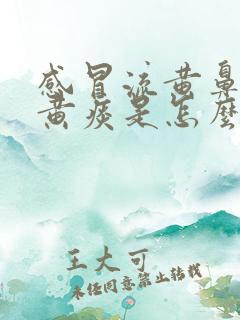 感冒流黄鼻
黄痰是怎麼
王大可
未经同意禁止转载